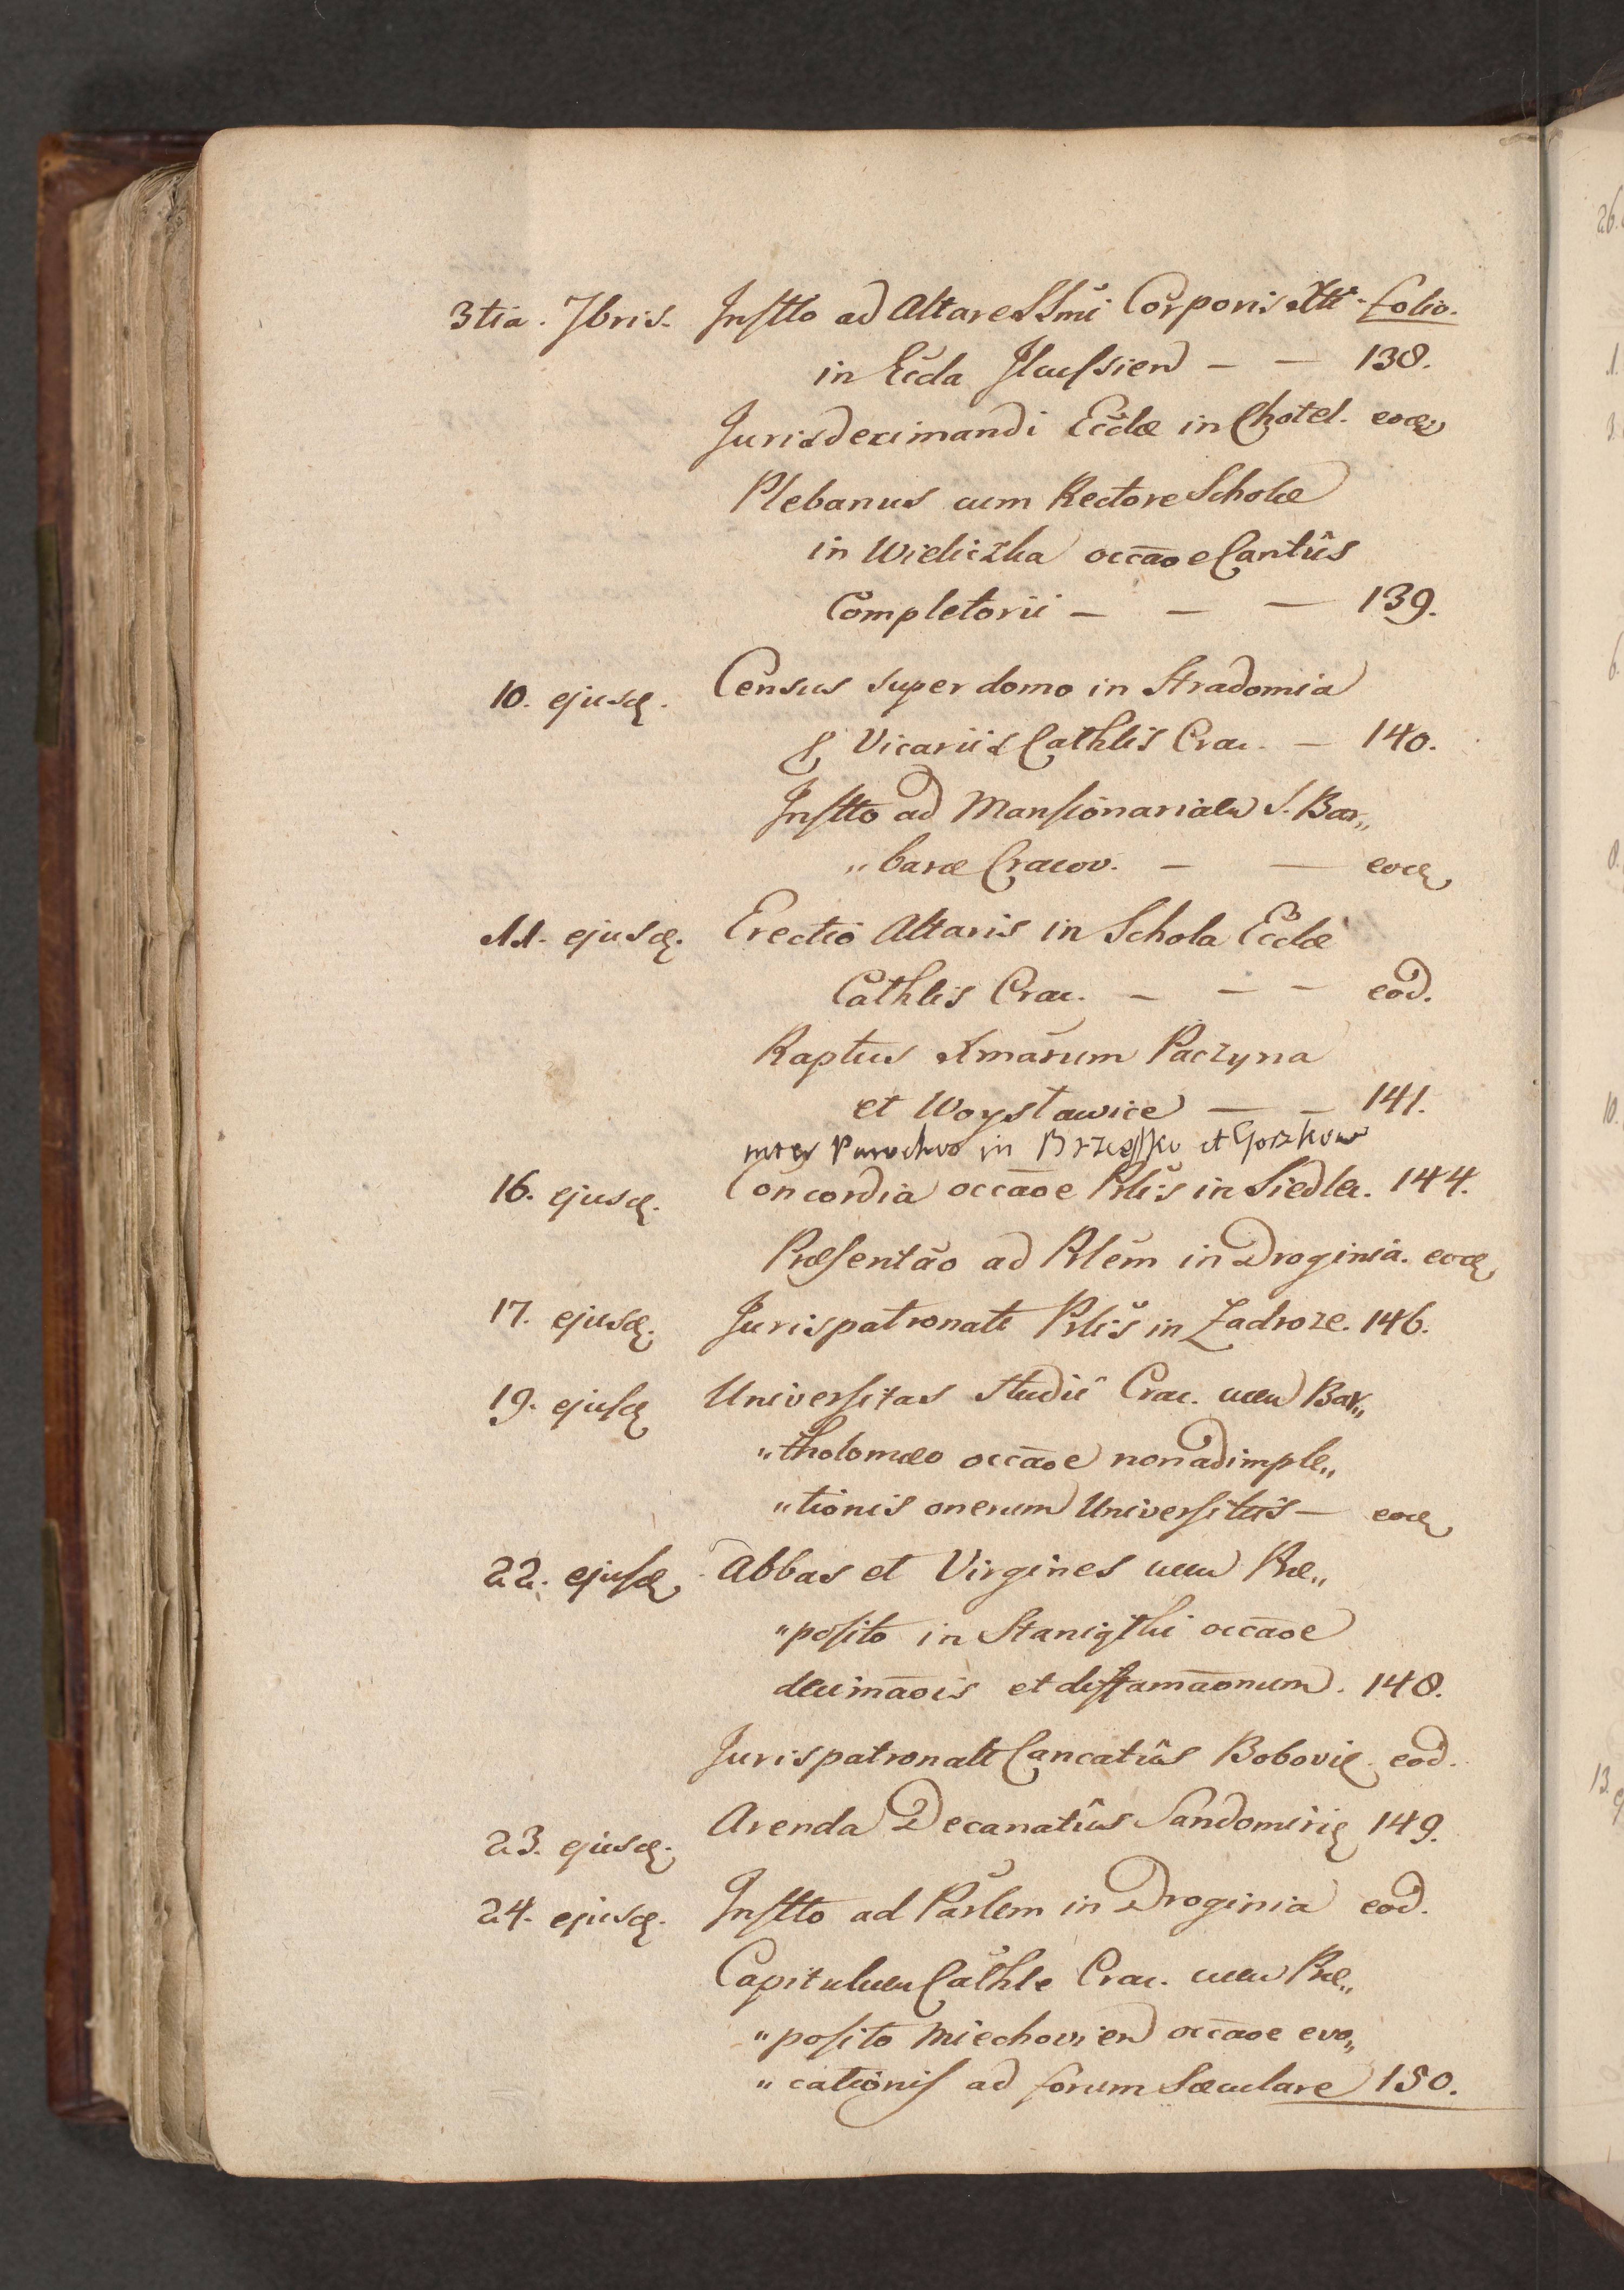 3tia. 7bris. Instto ad Altare SSmi Corporis Xti folio.
in Eccla Ilcussien — — 138.
Jurisdecimandi Ecclæ in Chotel. eod.
Plebanus cum Rectore Scholæ
in Wieliczka occaõe Cantûs
Completorii — — — 139.
10. ejusd. Census super domo in Stradomia
p Vicariis Cathlis Crac. — 140.
Instto ad Mansionariam S. Bar„
„baræ Cracov. — — eod.
11. ejusd. Erectio Altaris in Schola Ecclæ
Cathlis Crac. — — — eod.
Raptus Xmarum Paczyna
et Woysławice — — 141.
inter Parochos in Brzesko et Gorzkow
16. ejusd. Concordia occaõe Plis in Siedlec. 144.
Præsentao ad Plem in Droginia. eod.
17. ejusd. Jurispatronat Plis in Zadroze. 146.
19. ejusd. Universitas Studii Crac. cum Bar„
„tholomæo occaõe non adimple„
„tionis onerum Universitatis — eod.
22. ejusd. Abbas et Virgines cum Præ„
„posito in occaõe
decimaõis et diffamaõnum. 148.
Jurispatronat Cancatûs Bobovie. eod.
23. ejusd. Arenda Decanatûs Sandomirie 149.
24. ejusd. Instto ad Parlem in Droginia eod.
Capitulum Cathle Crac. cum Præ„
„posito Miechovien occaõe evo„
„cationis ad forum Sæculare 150.